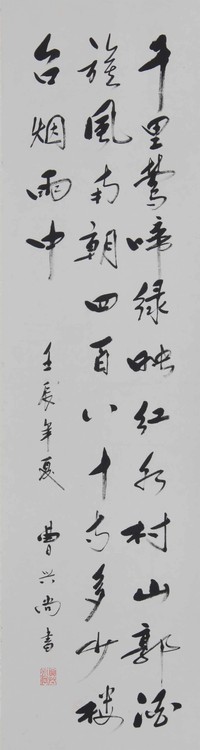 千里莺啼绿映红水村山郭酒
旗风南朝四百八十寺多少楼
台烟雨中
壬辰年夏 曹兴尚書